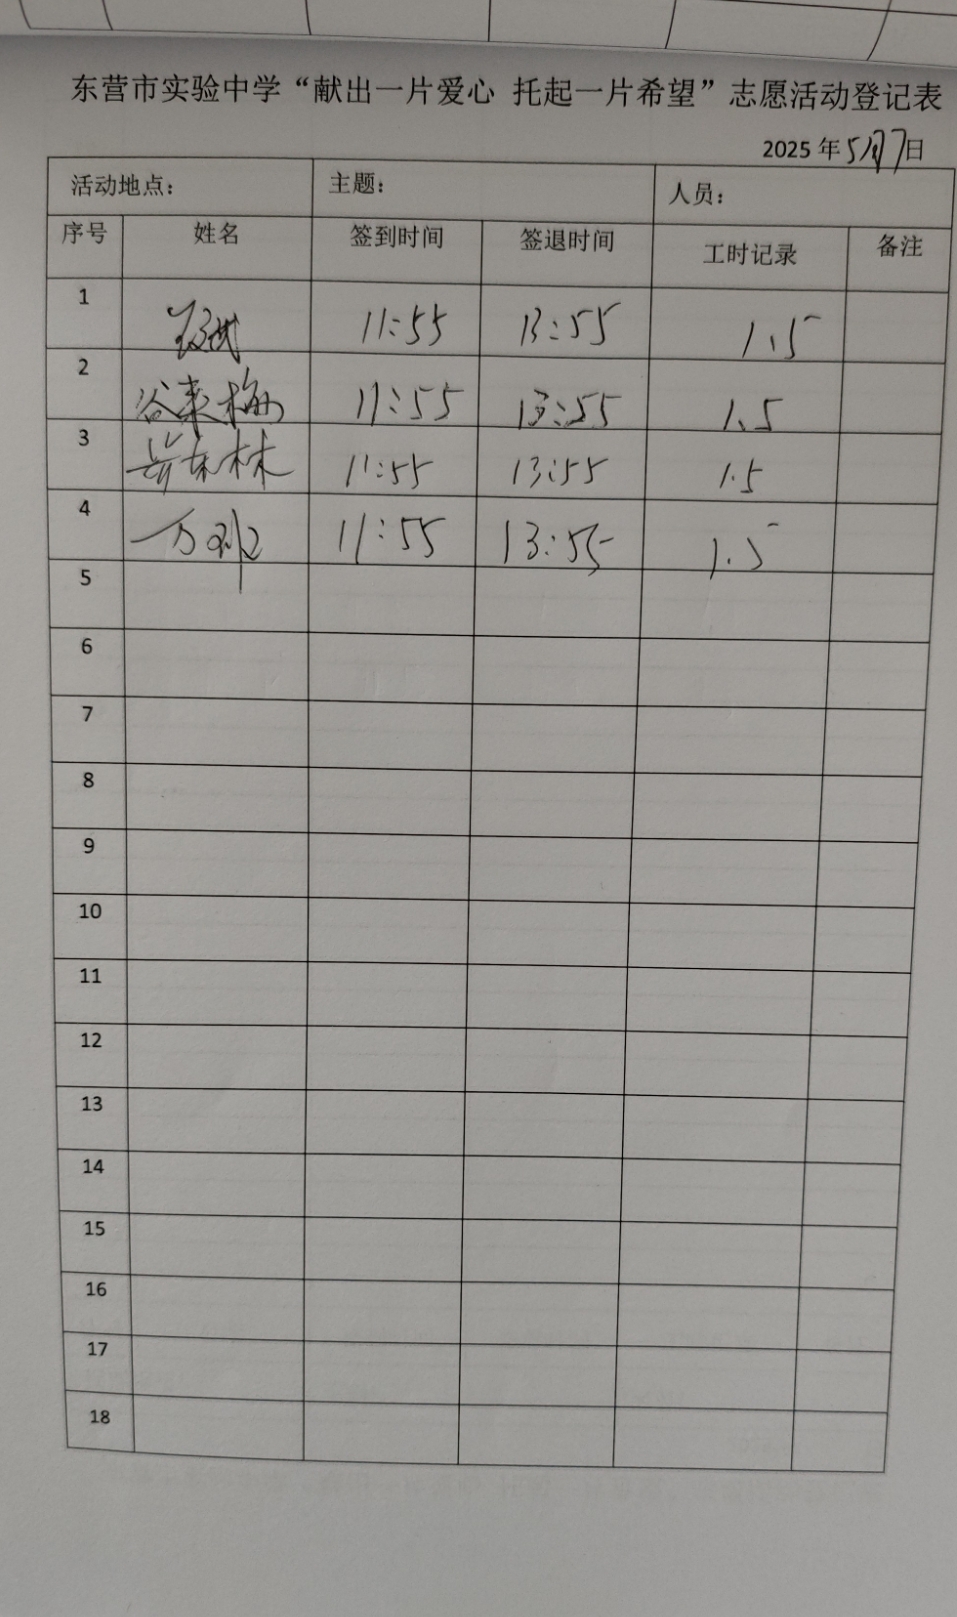 东营市实验中学“献出一片爱心 托起一片希望”志愿活动登记表
2025 年 5月7日
活动地点： 主题： 人员：
序号 姓名 签到时间 签退时间 工时记录 备注
1 11:55 13:55 1.5
2 谷来梅 11:55 13:55 1.5
3 岳东林 11:55 13:55 1.5
4 11:55 13:55 1.5
5
6
7
8
9
10
11
12
13
14
15
16
17
18